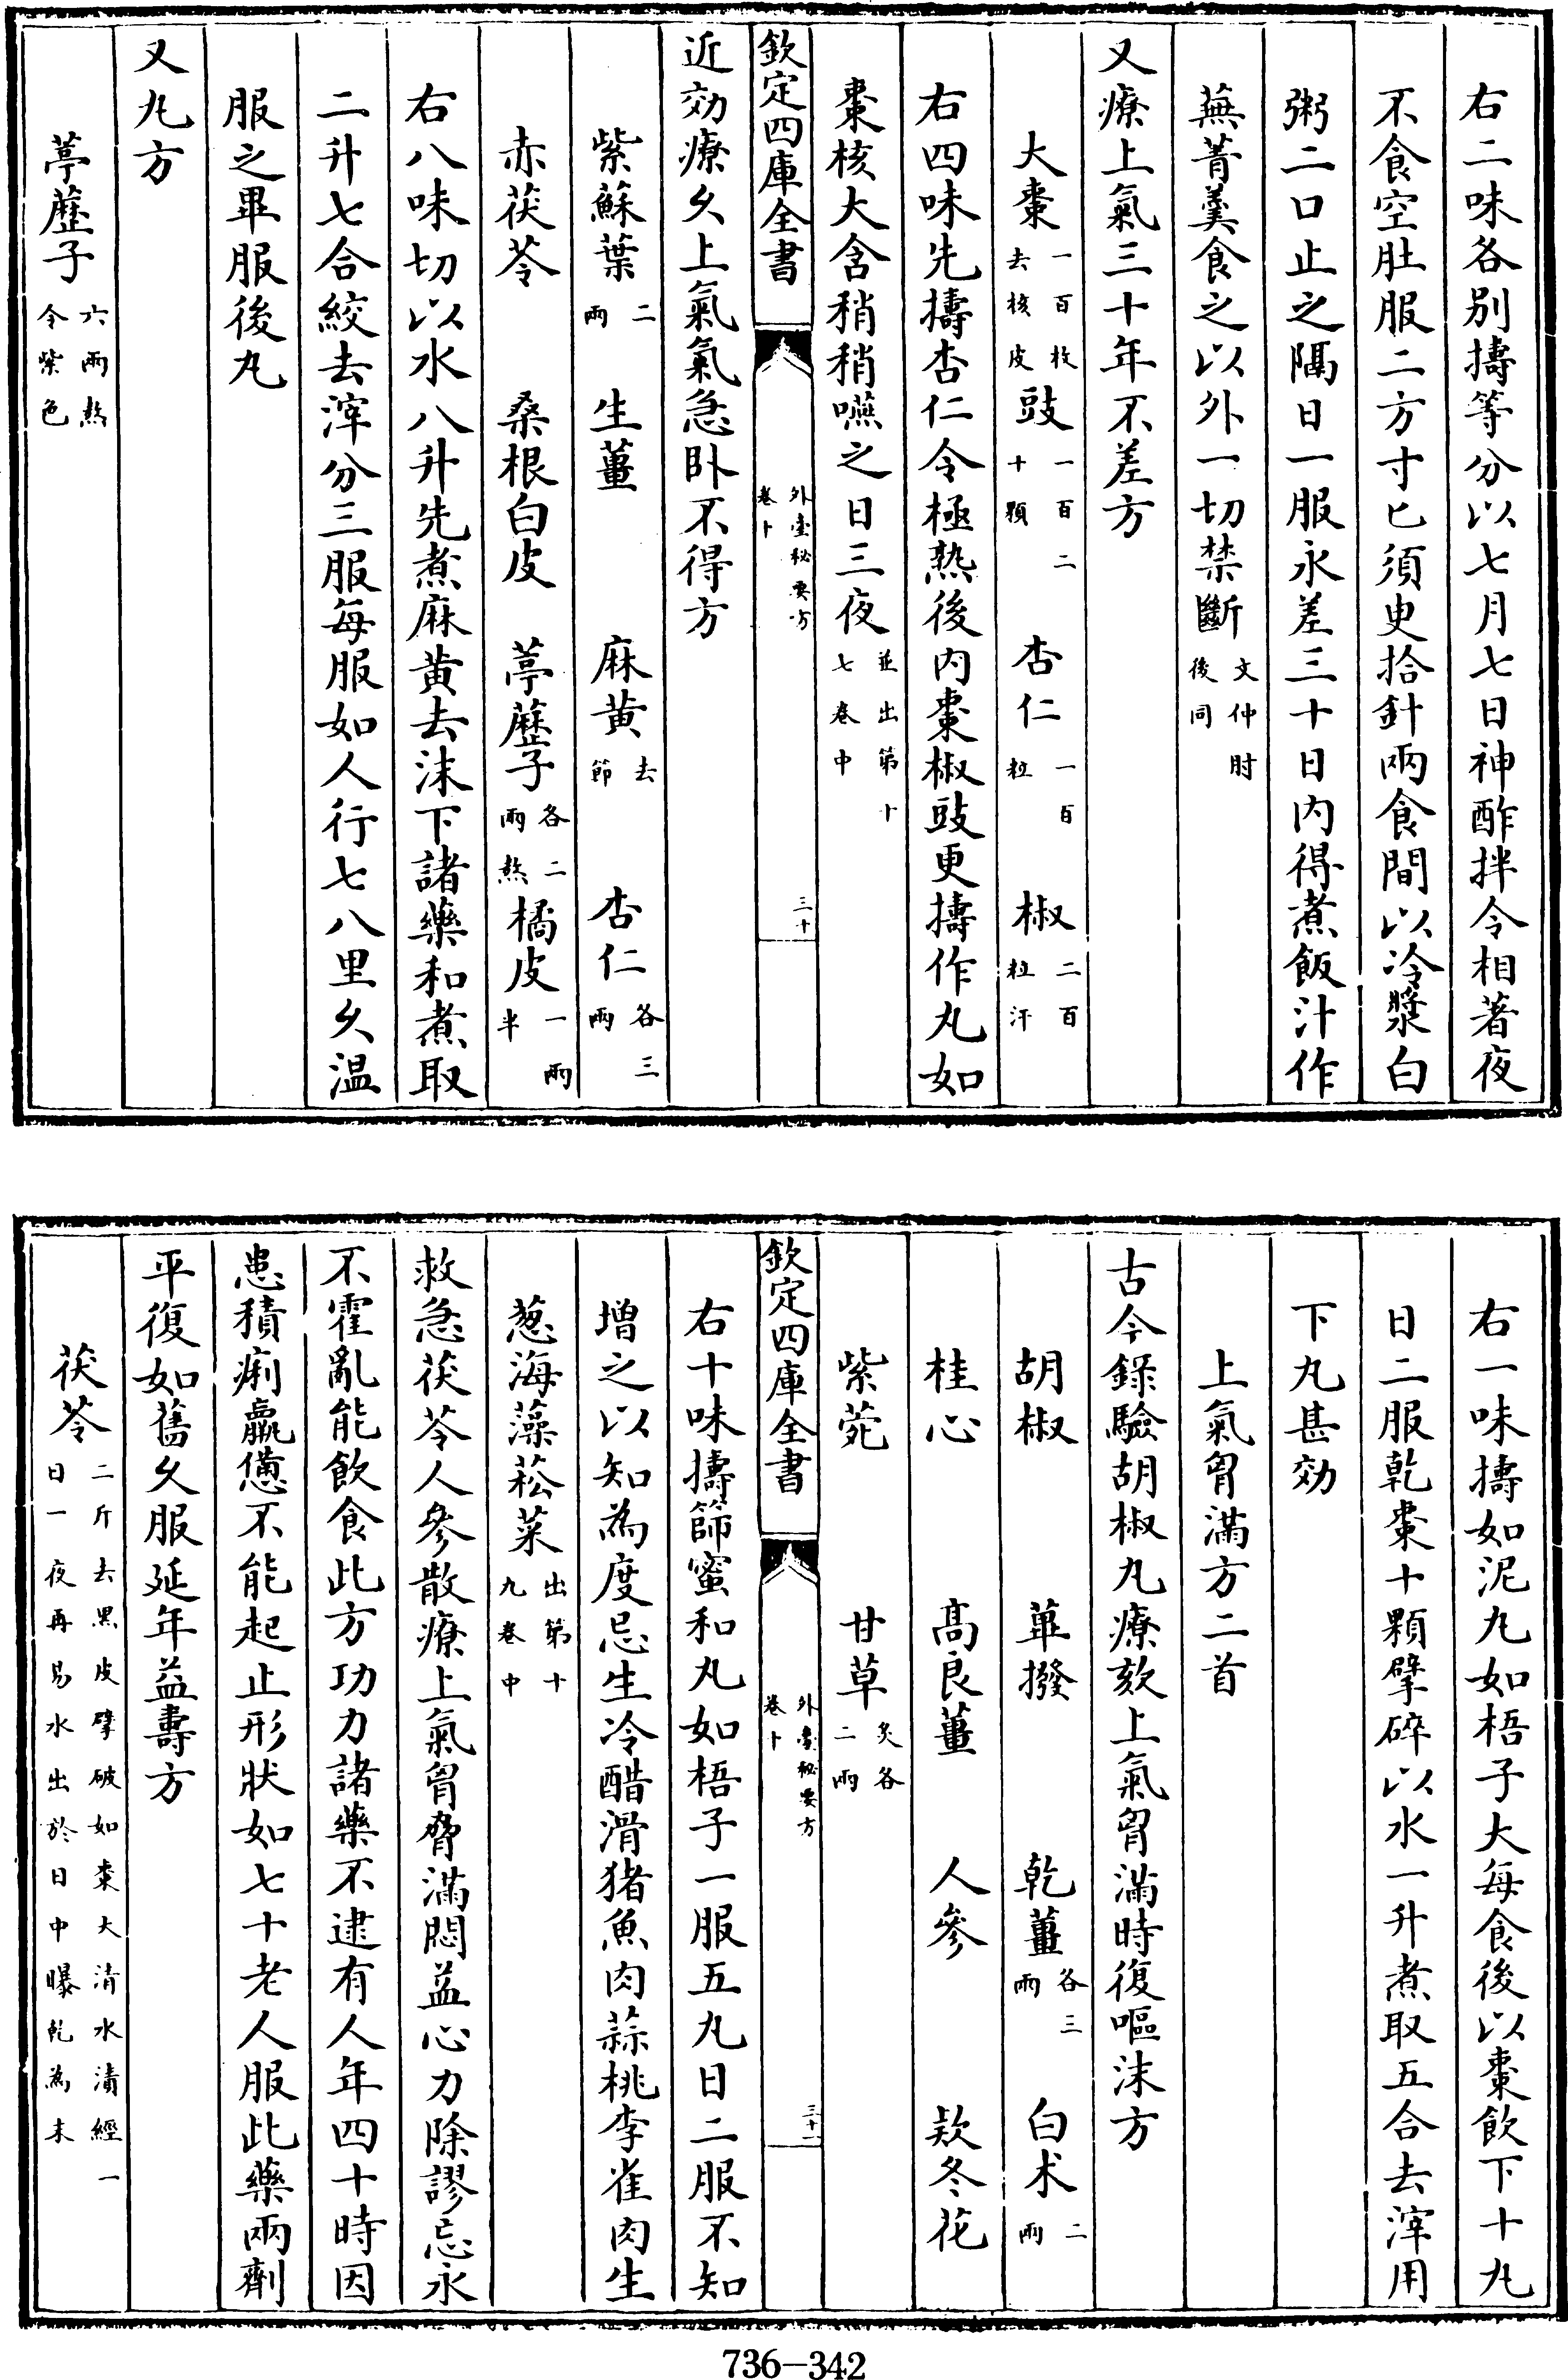 右二味各别擣等分以七月七日神酢拌令相著夜
不食空肚服二方寸匕須臾拾針兩食間以冷漿白
粥二口止之隔日一服永差三十日内得煮飯汁作
蕪菁羹食之以外一切禁斷文仲肘後同
又療上氣三十年不差方
大棗一百枚去核皮 豉一百二十顆 杏仁一百粒 椒二百粒汗
右四味先擣杏仁令極熟後内棗椒豉更擣作丸如
棗核大含稍稍嚥之日三夜並出第十七卷中
欽定四庫全書 外臺秘要方卷十 三十
近効療久上氣氣急卧不得方
紫蘇葉二兩 生薑 麻黄去節 杏仁各三兩
赤茯苓 桑根白皮 葶藶子各二兩熬 橘皮一兩半
右八味切以水八升先煮麻黄去沫下諸藥和煮取
二升七合絞去滓分三服每服如人行七八里久温
服之畢服後丸
又丸方
葶藶子六兩熬令紫色
右一味擣如泥丸如梧子大每食後以棗飲下十丸
日二服乾棗十顆擘碎以水一升煮取五合去滓用
下丸甚効
上氣胷滿方二首
古今錄驗胡椒丸療欬上氣胷滿時復嘔沫方
胡椒 蓽撥 乾薑各三兩 白术二兩
桂心 髙良薑 人參 欵冬花
紫菀 甘草炙各二兩
欽定四庫全書 外臺秘要方卷十 三十一
右十味擣篩蜜和丸如梧子一服五丸日二服不知
增之以知為度忌生冷醋滑猪魚肉蒜桃李雀肉生
葱海藻菘菜出第十九卷中
救急茯苓人參散療上氣胷脅滿悶益心力除謬忘永
不霍亂能飲食此方功力諸藥不逮有人年四十時因
患積痢羸憊不能起止形狀如七十老人服此藥兩劑
平復如舊久服延年益壽方
茯苓二斤去黒皮擘破如棗大清水漬經一日一夜再易水出於日中曝乾為末
736-342